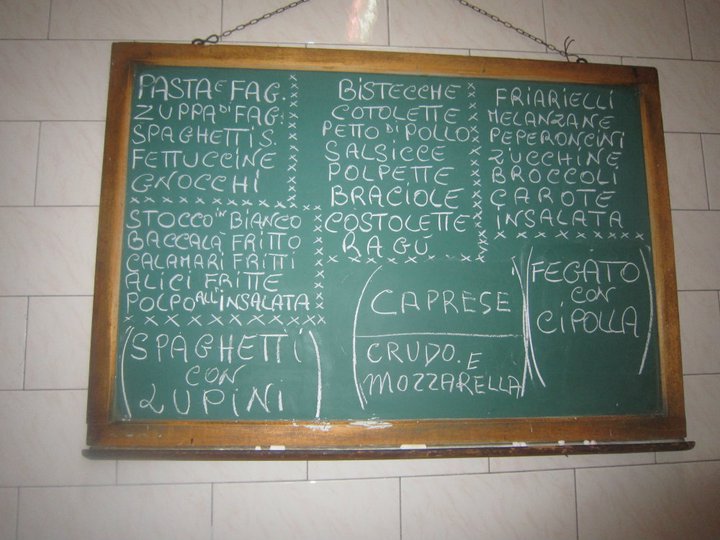 PASTA E FAG.
ZUPPA DI FAG.
SPAGHETTI S.
FETTUCCINE
GNOCCHI
STOCCO IN BIANCO
BACCALÀ FRITTO
CALAMARI FRITTI
ALICI FRITTE
POLPO ALL'INSALATA
SPAGHETTI
CON
LUPINI
BISTECCHE
COTOLETTE
PETTO DI POLLO
SALSICCE
POLPETTE
BRACIOLE
COSTOLETTE
RAGÙ
CAPRESE
CRUDO. E
MOZZARELLA
FRIARIELLI
MELANZANE
PEPERONCINI
ZUCCHINE
BROCCOLI
CAROTE
INSALATA
FEGATO
CON
CIPOLLA